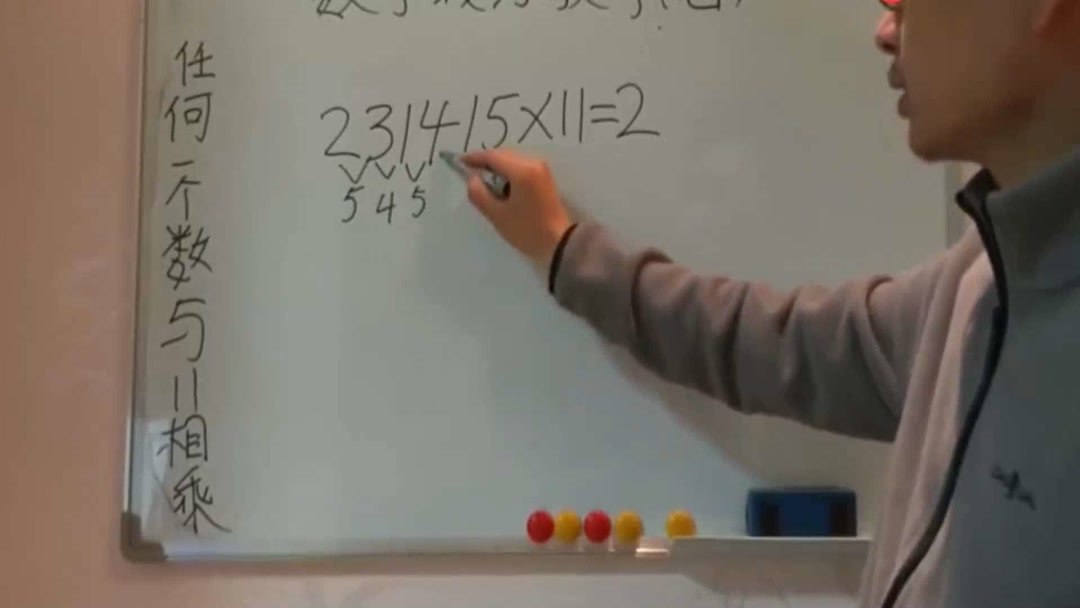 231415×11=2
5 4 5
任何一个数与11相乘